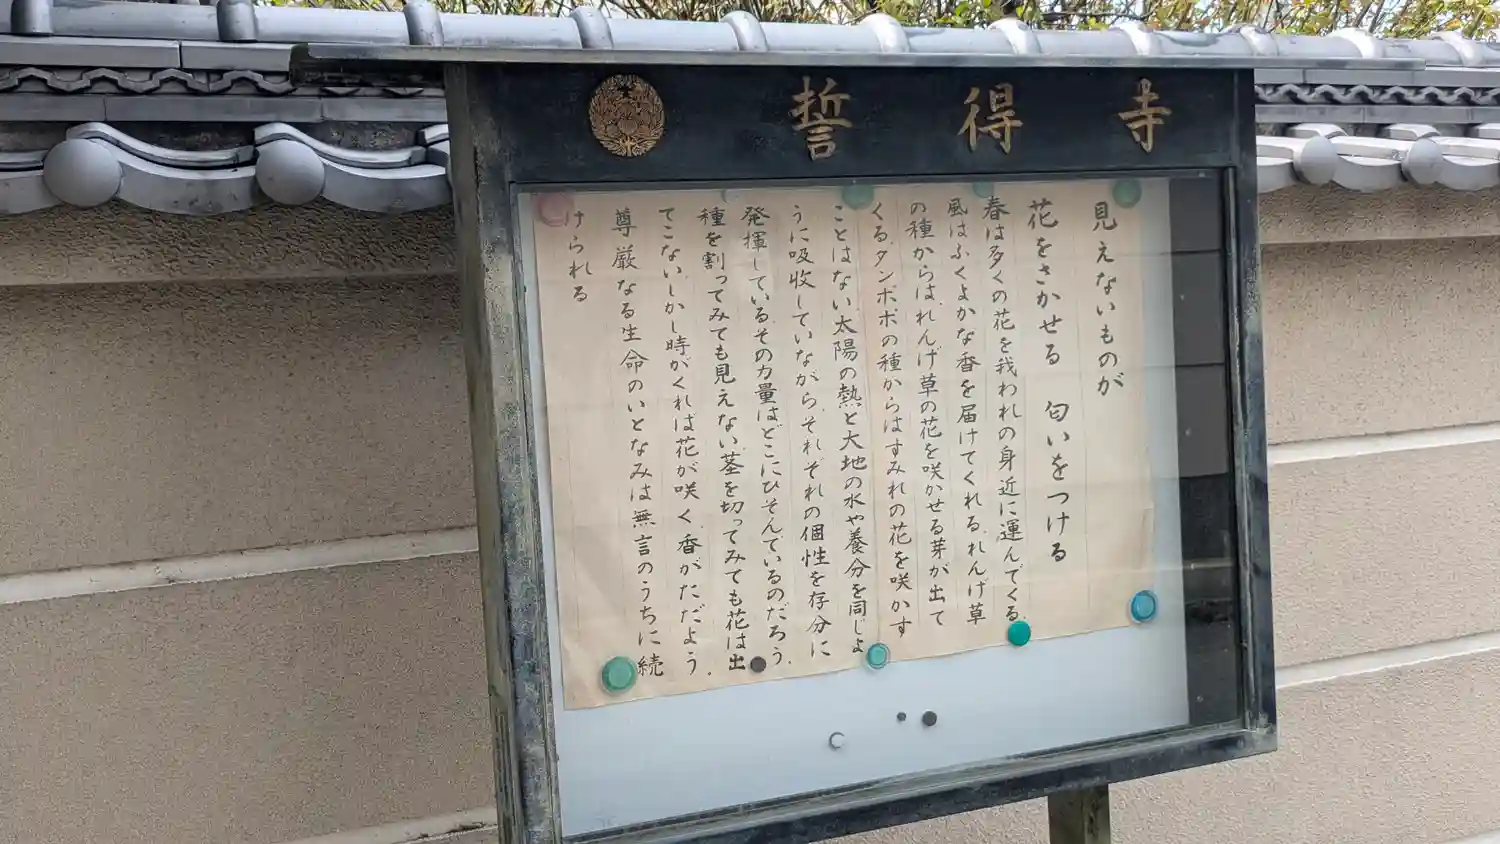 誓得寺
見えないものが
花をさかせる 匂いをつける
春は多くの花を我われの身近に運んでくる.
風はふくよかな香を届けてくれる.れんげ草
の種からは、れんげ草の花を咲かせる芽が出て
くる.タンポポの種からはすみれの花を咲かす
ことはない.太陽の熱と大地の水や養分を同じよ
うに吸収していながら.それぞれの個性を存分に
発揮している.その力量はどこにひそんでいるのだろう.
種を割ってみても見えない.茎を切ってみても花は出
てこない.しかし時がくれば花が咲く.香がただよう.
尊厳なる生命のいとなみは無言のうちに続
けられる